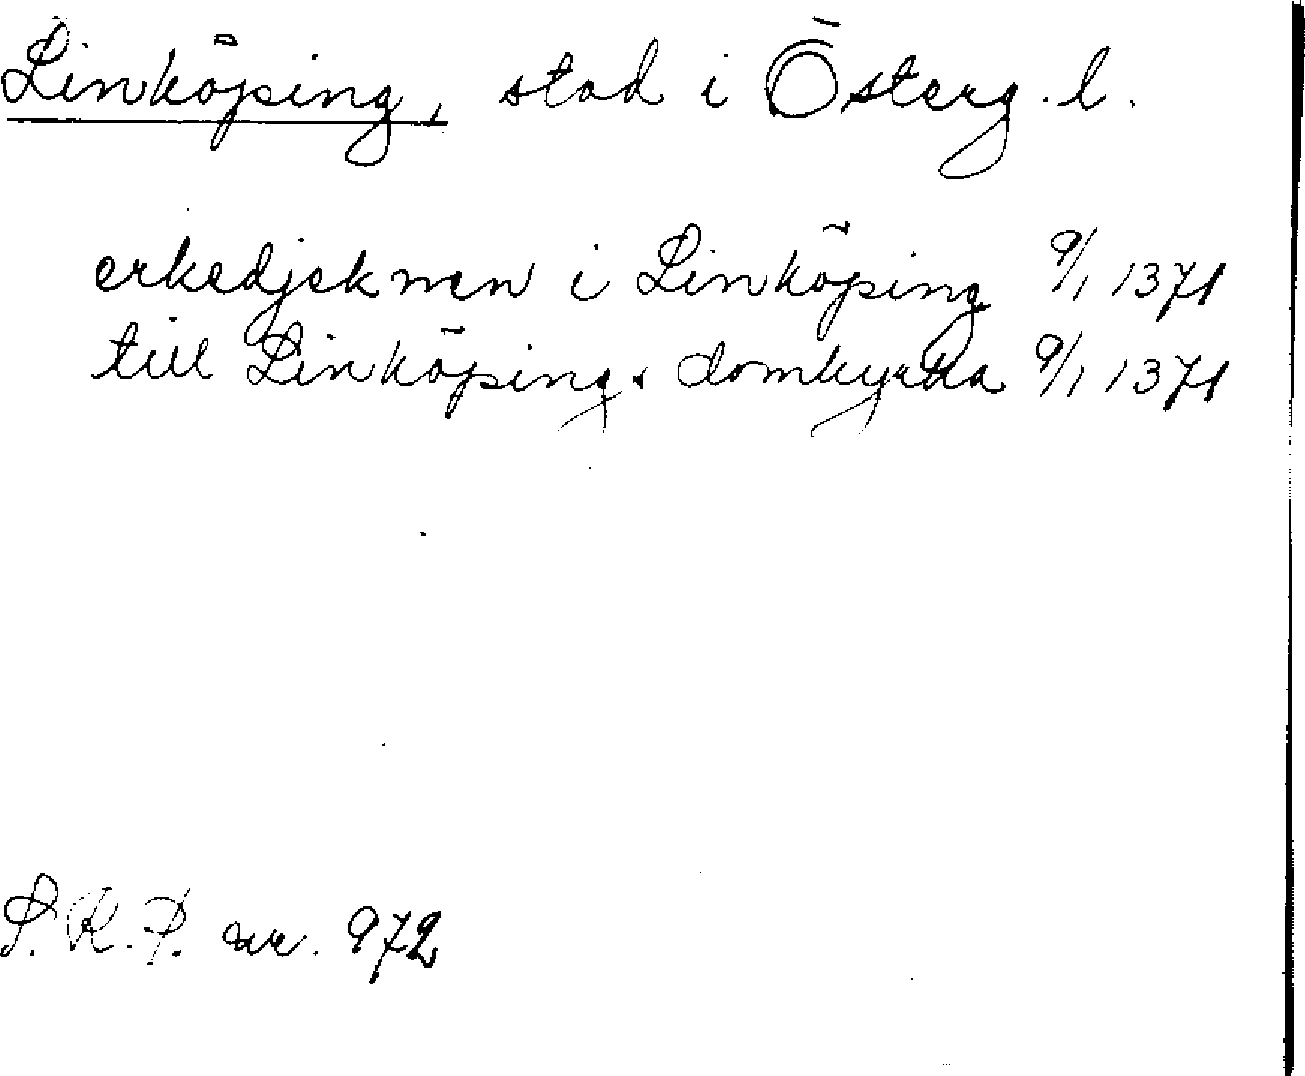 Linköping, stad i Österg. l.
erkedjeknen i Linköping 9/1 1371
till Linköpings domkyrka 9/1 1371
S. R. P. nr. 972